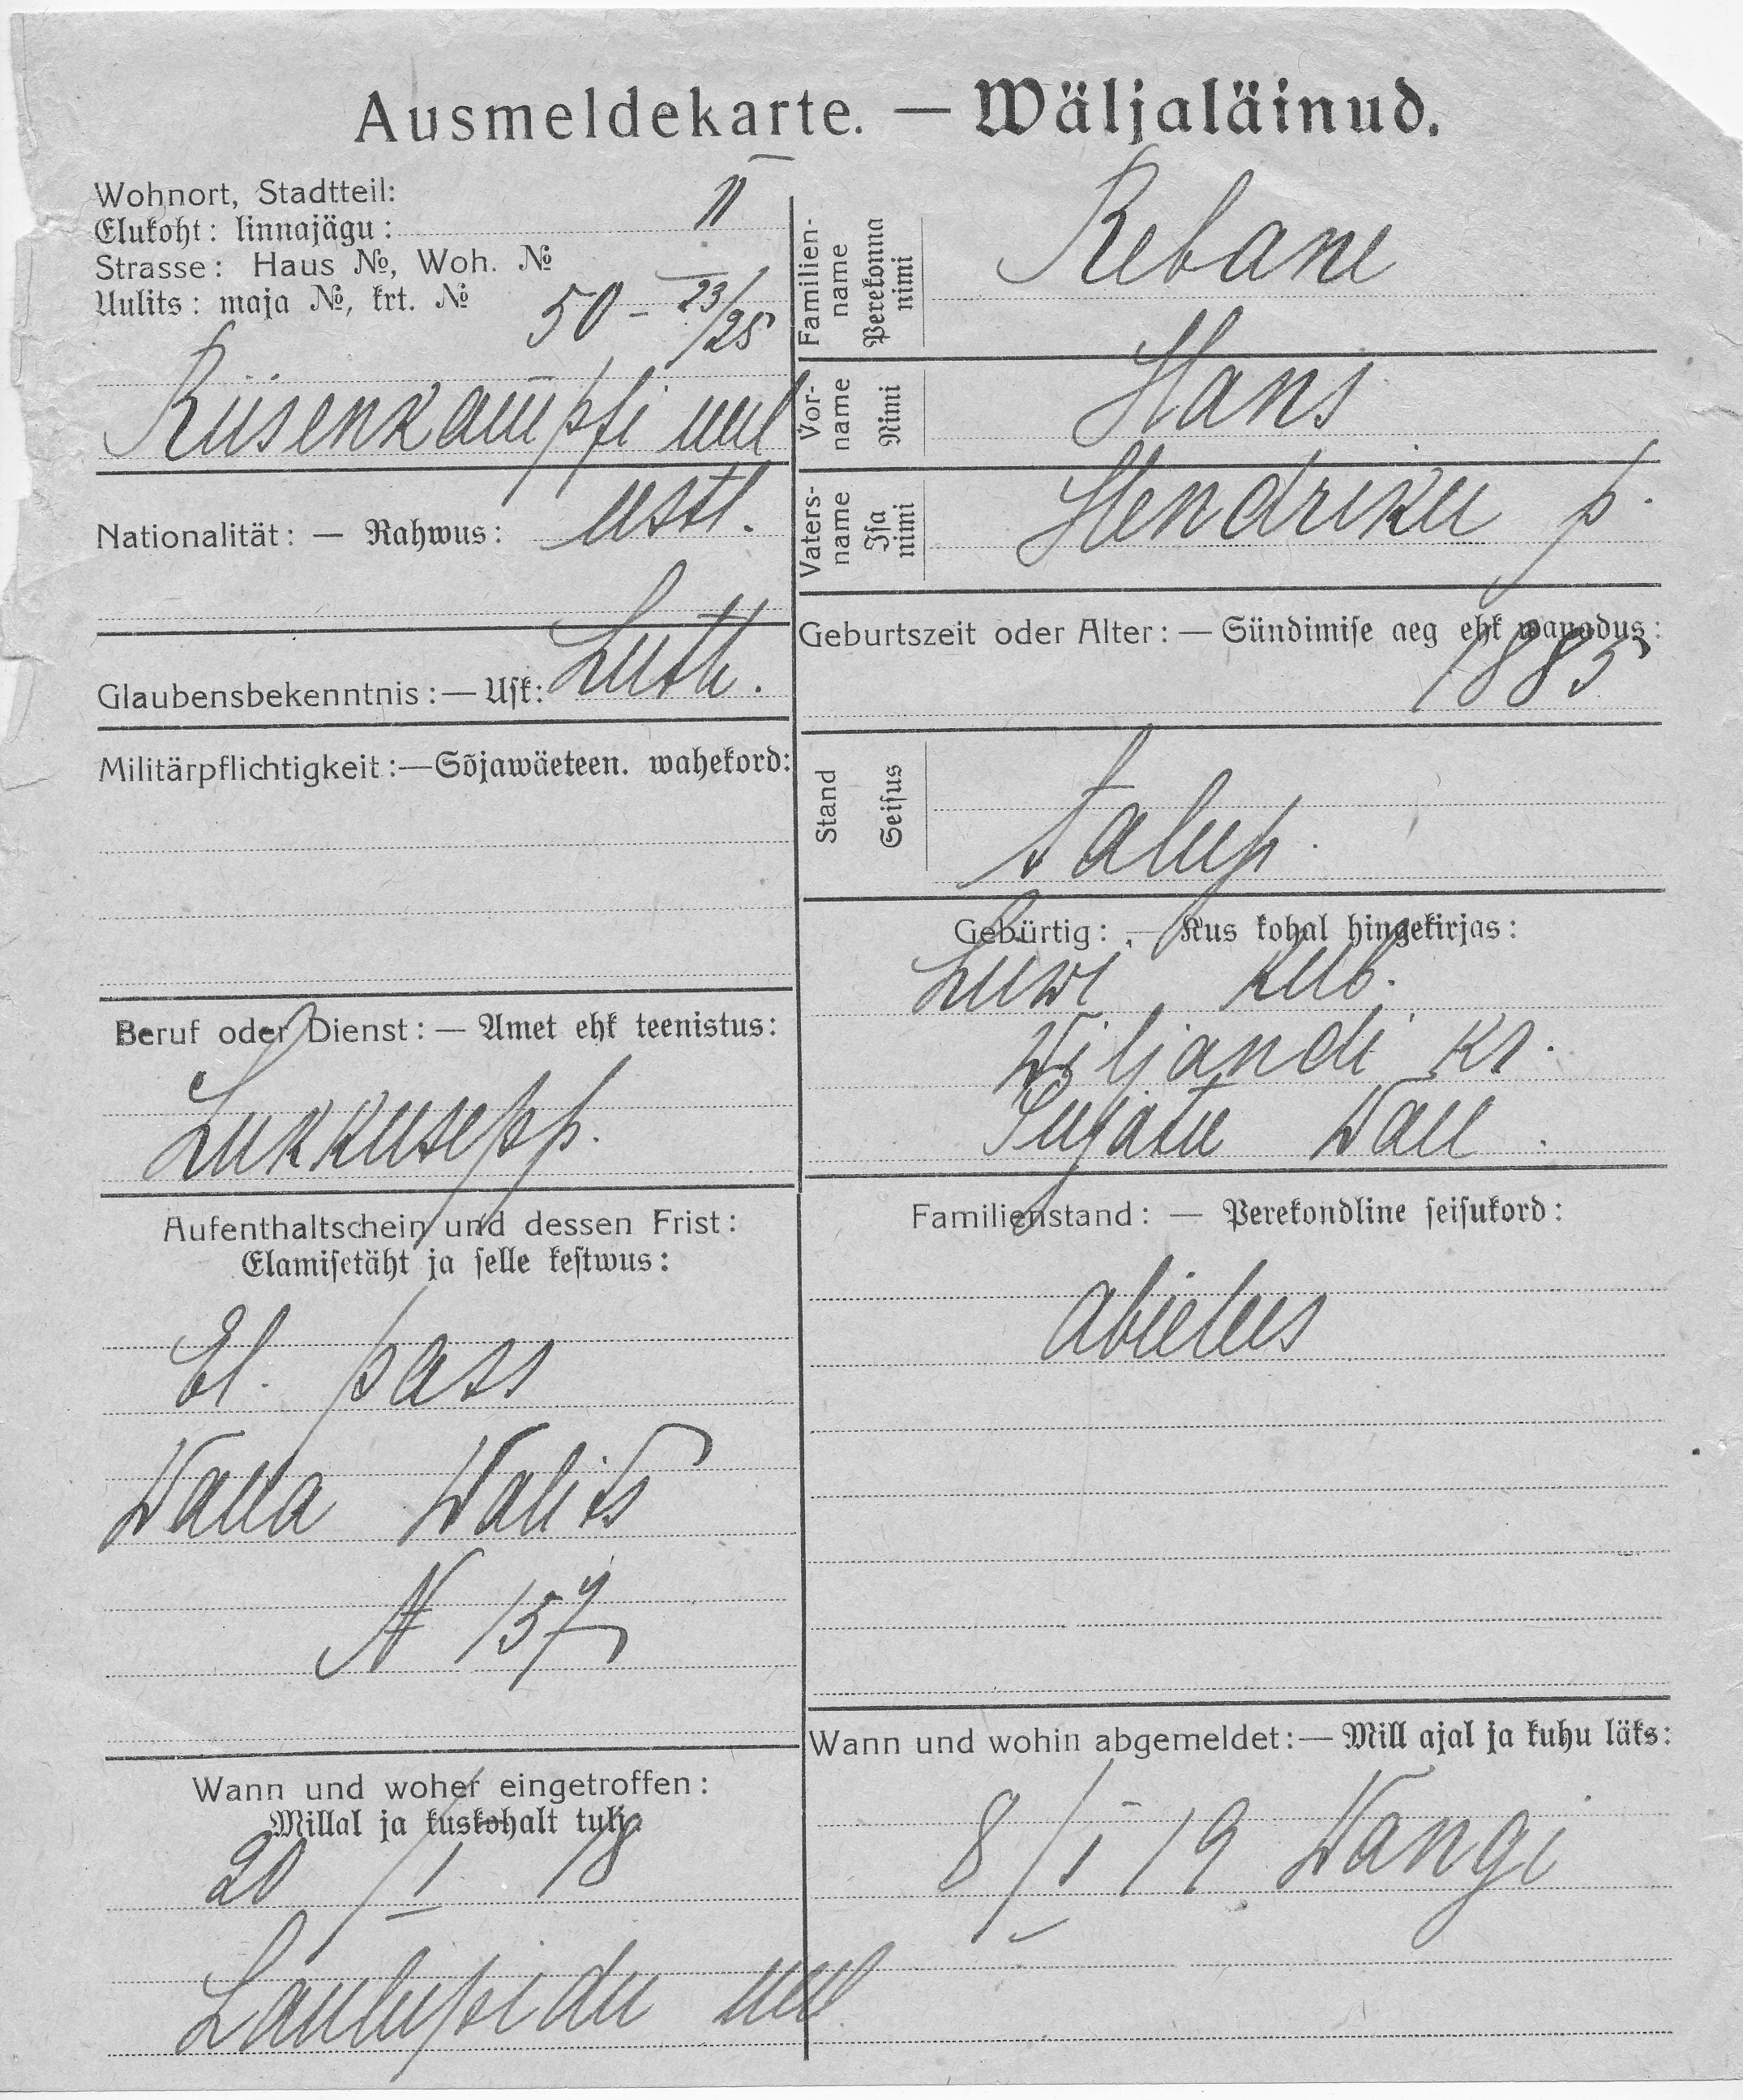 Ausmeldekarte. — Wäljaläinud.
Wohnort, Stadtteil:
Elukoht: linnajägu: II
Strasse: Haus №, Woh. №
Uulits: maja №, krt. № 50 - 23/25
Rüsenkampfi uul
Nationalität: — Rahwus: eestl.
Glaubensbekenntnis: — Usk: Luth.
Militärpflichtigkeit: — Sõjawäeteen. wahekord:
Beruf oder Dienst: — Amet ehk teenistus:
Lukkusepp.
Aufenthaltschein und dessen Frist:
Elamisetäht ja selle kestwus:
El. pass
Walits
N 157
Wann und woher eingetroffen:
Millal ja kuskohalt tulj.
20/I 18
Laulupidu uul
Familien-
name
Perekonna
nimi
Rebane
Vor-
name
Nimi
Hans
Vaters-
name
Isa
nimi
Hendriku p.
Geburtszeit oder Alter: — Sündimise aeg ehk wanadus:
1885
Stand
Seisus
talup.
Gebürtig: — Kus kohal hingekirjas:
Liiwi kub.
Wiljandi kr.
Wall
Familienstand: — Perekondline seisukord:
abielus
Wann und wohin abgemeldet: — Mill ajal ja kuhu läks:
8/I 19 Wangi